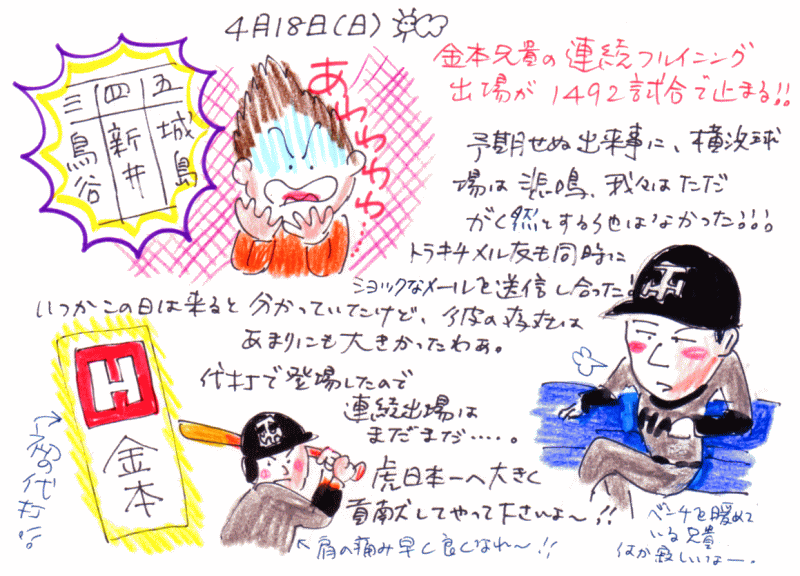 4月18日(日)
金本兄貴の連続フルイニング
出場が1492試合で止まる!!
三 四 五
鳥谷 新井 城島
あわわわわ……
予期せぬ出来事に、横浜球
場は悲鳴、我々はただ
がく然とする他はなかった!!!
トラキチメル友も同時に
ショックなメールを送信し合った!
いつかこの日は来ると分かっていたけど、彼の存在は
あまりにも大きかったわぁ。
代打で登場したので
連続出場は
まだまだ……。
H
金本
初の代打!!
虎日本一へ大きく
貢献してやって下さいよ〜!!
肩の痛み早く良くなれ〜!!
ベンチを暖めて
いる兄貴
何か寂しいなー。